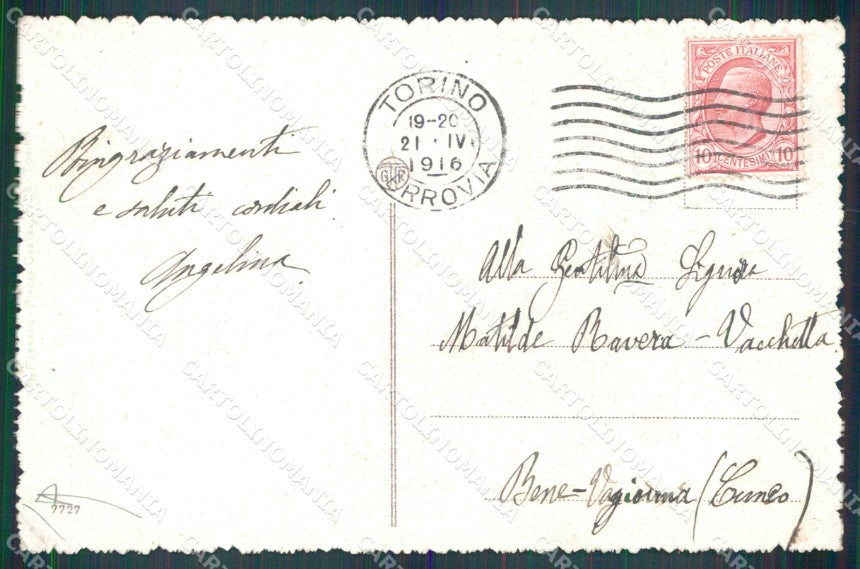 TORINO
19-20
21 · IV
1916
FERROVIA
POSTE ITALIANE
10 CENTESIMI 10
Ringraziamenti
e saluti cordiali
Angelina
Alla Gentilma Signora
Matilde Ravera - Vacchetta
Bene - Vagienna (Cuneo)
7727
CARTOLINOMANIA